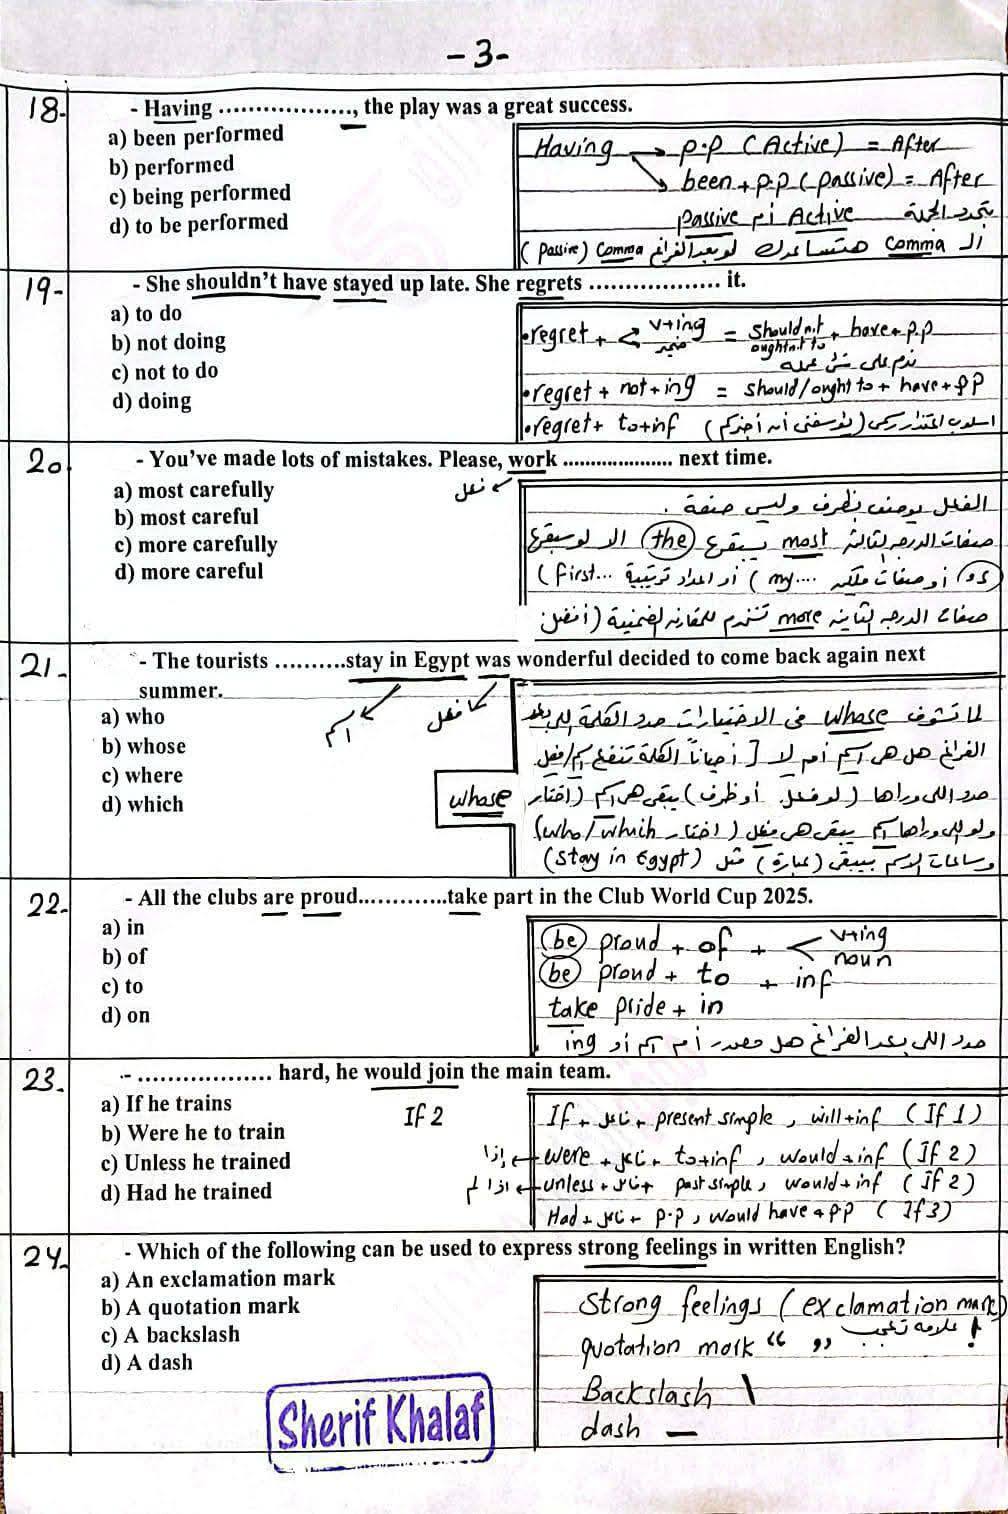 -3-
18-
- Having .................., the play was a great success.
a) been performed
b) performed
c) being performed
d) to be performed
Having → p.p (Active) = After
been + p.p (passive) = After
passive أم Active بتحدد الجملة
الـ comma هتساعدك لو بعد الفراغ comma (passive)
19-
- She shouldn't have stayed up late. She regrets .................. it.
a) to do
b) not doing
c) not to do
d) doing
• regret + v+ing = shouldn't + have + p.p
ضمير oughtn't to
ندم على شئ عمله
• regret + not + ing = should/ought to + have + pp
• regret + to + inf
20
- You've made lots of mistakes. Please, work .................... next time.
a) most carefully
b) most careful
c) more carefully
d) more careful
فعل
الفعل يوصف بظرف وليس صفة .
صفات الدرجة الثالثة most (the) الا لو سبقها
أو صفات ملكية (my.... ) أو اعداد ترتيبية (first...
صفات الدرجة الثانية more تستخدم للمقارنة الضمنية (أفضل
21-
- The tourists ..........stay in Egypt was wonderful decided to come back again next
summer.
a) who
b) whose
c) where
d) which
اسم
فعل
whose
لما تشوف whose فى الاختيارات حدد الكلمة اللى بعد
الفراغ هل هى اسم أم لا [أحياناً الكلمة تنفع اسم/فعل
حدد اللى وراها (لو فعل أو ظرف) يبقى هى اسم (اختار
ولو اللى وراها اسم يبقى هى فعل (اختار who/which)
وساعات الاسم بيبقى (عبارة) مثل (stay in Egypt)
22-
- All the clubs are proud.............take part in the Club World Cup 2025.
a) in
b) of
c) to
d) on
be proud + of + v+ing
noun
be proud + to + inf
take pride + in
حدد اللى بعد الفراغ هل مصدر أم اسم أو ing .
23-
- .................. hard, he would join the main team.
a) If he trains
b) Were he to train
c) Unless he trained
d) Had he trained
If 2
If + فاعل + present simple , will+inf (If 1)
إذا ← were + فاعل + to+inf , would+inf (If 2)
اذا لم ← unless + فاعل + past simple, would+inf (If 2)
Had + فاعل + p.p , would have + pp (If 3)
24-
- Which of the following can be used to express strong feelings in written English?
a) An exclamation mark
b) A quotation mark
c) A backslash
d) A dash
Strong feelings (exclamation mark)
علامة تعجب !
quotation mark “ ”
Backslash \
dash —
Sherif Khalaf